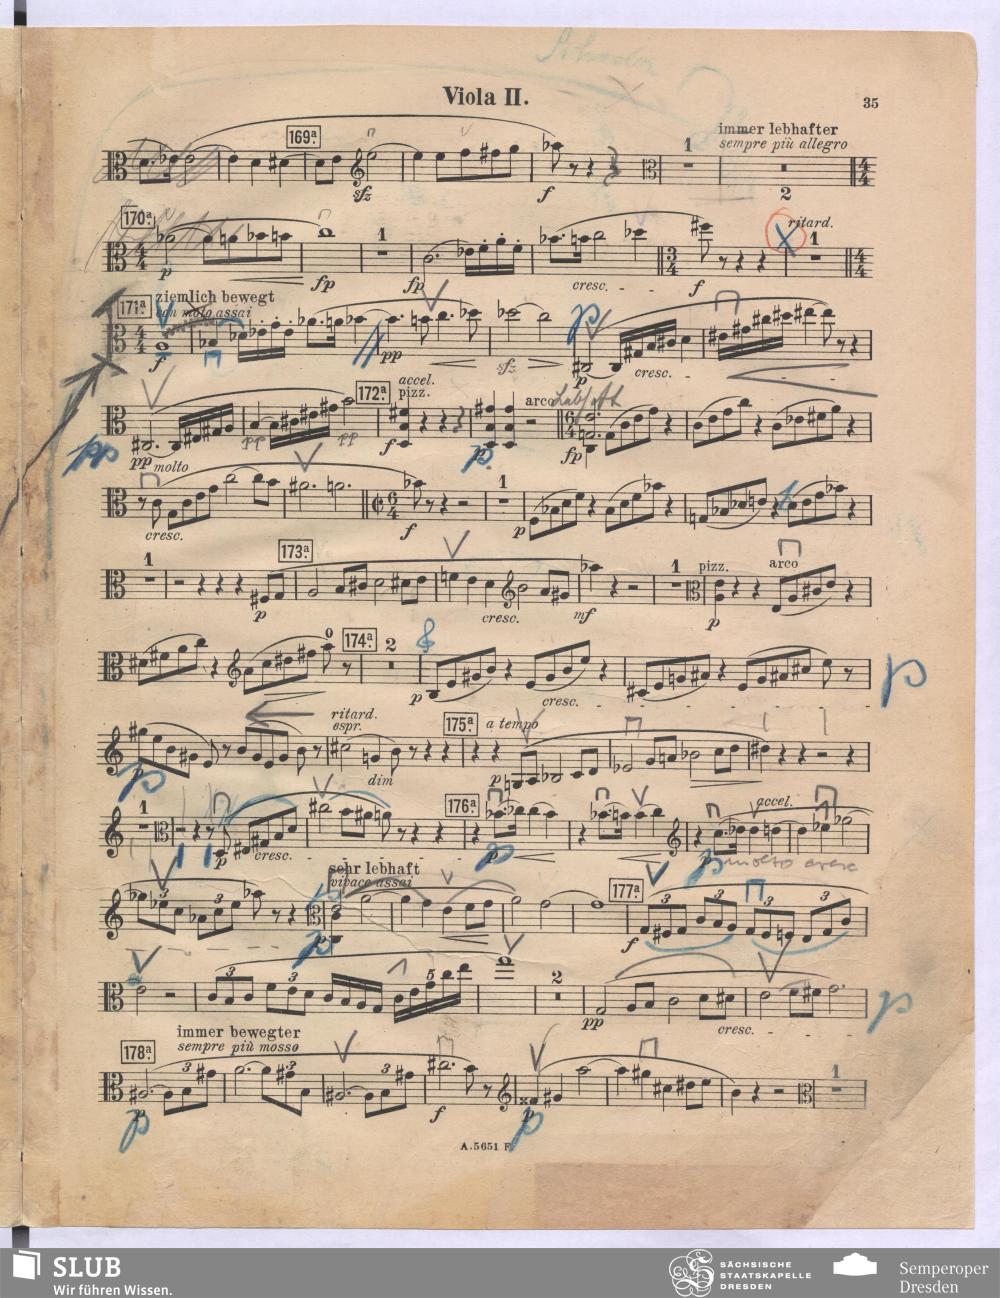 Viola II.
35
169a.
immer lebhafter
sempre più allegro
1
sfz
f
2
170a.
ritard.
1
1
p
fp
fp
cresc.
f
171a.
ziemlich bewegt
con moto assai
f
pp
sfz
p
p
cresc.
172a.
accel.
pizz.
arco
pp
pp molto
pp
pp
f
p.
fp
1
cresc.
f
p
1
173a.
1
pizz.
arco
p
cresc.
mf
p
0
174a.
2
p
cresc.
p
ritard.
espr.
175a.
a tempo
p
dim
p
1
176a.
accel.
p
cresc.
p
p molto cresc
sehr lebhaft
vivace assai
177a.
3
3
3
3
3
3
p
f
3
3
5
2
pp
cresc.
p
immer bewegter
sempre più mosso
178a.
3
3
3
1
p
f
p
A.5651 F.
SLUB
Wir führen Wissen.
SÄCHSISCHE
STAATSKAPELLE
DRESDEN
Semperoper
Dresden